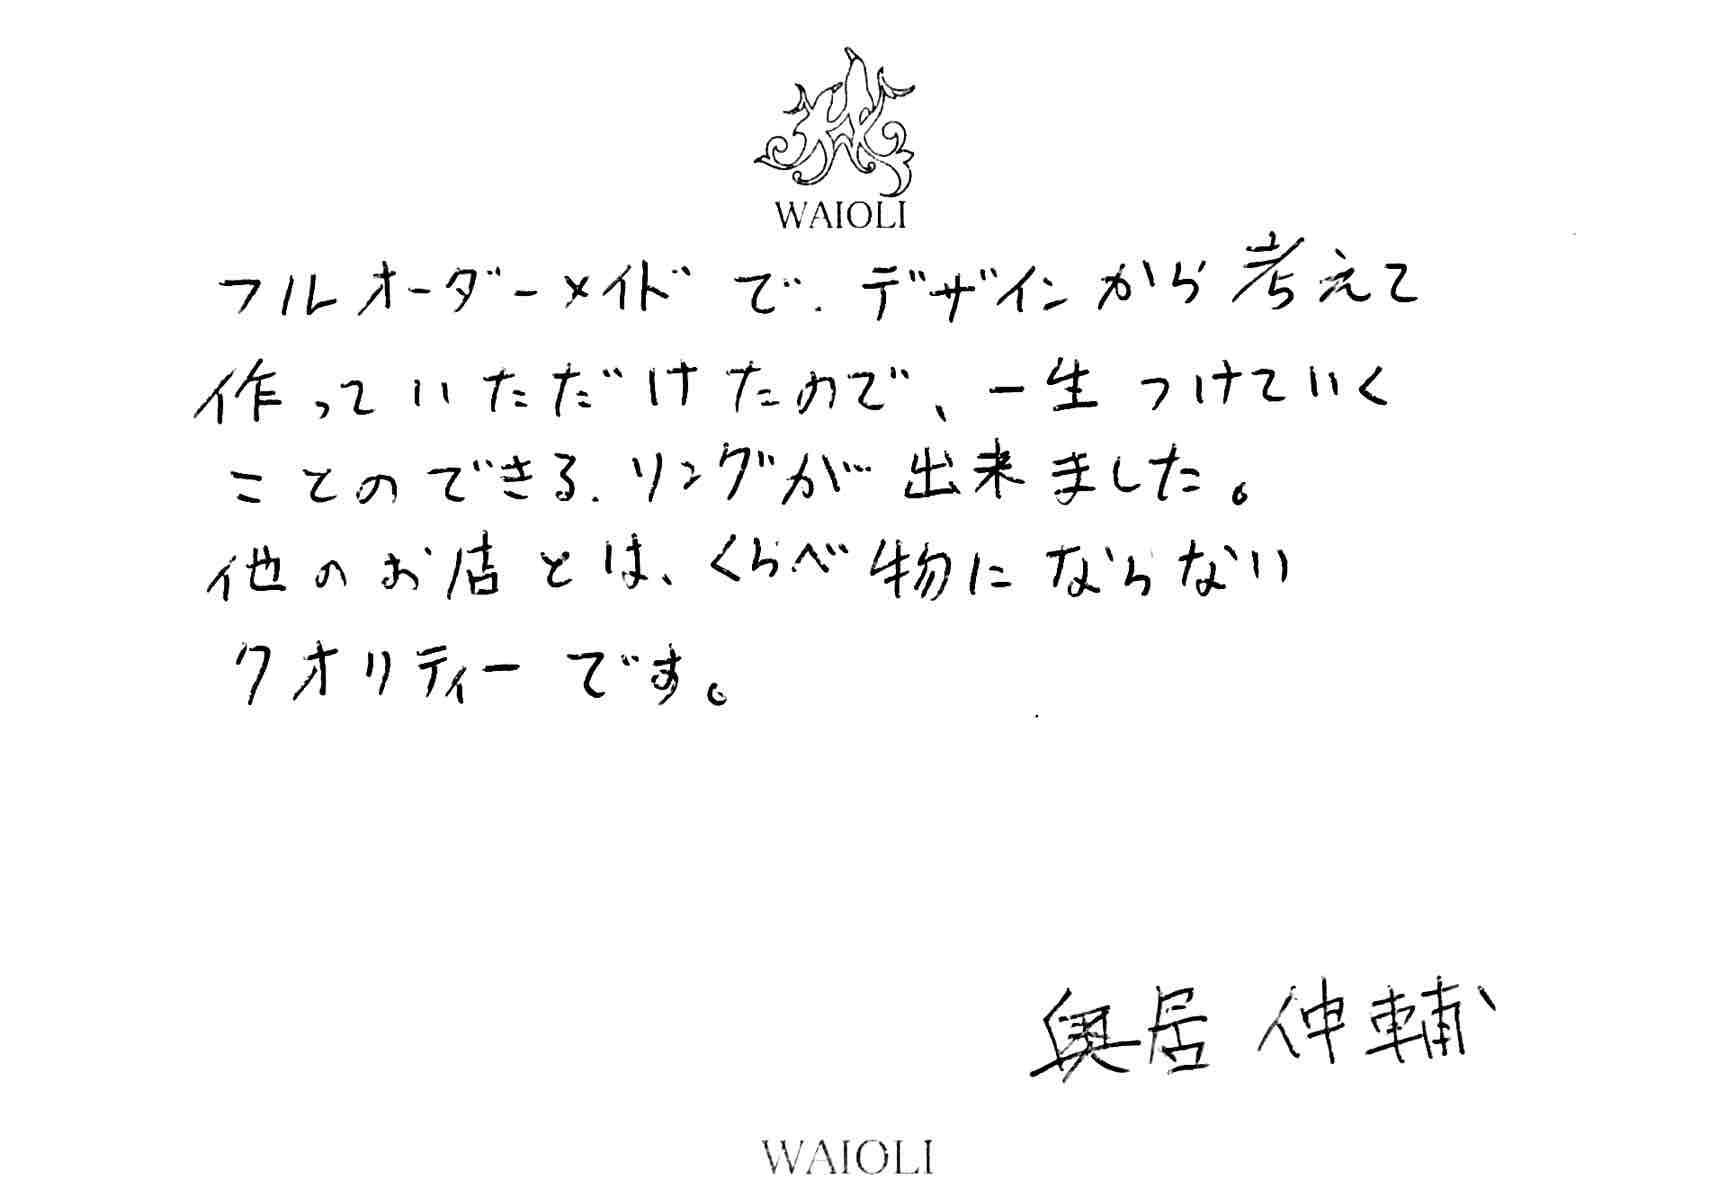 WAIOLI
フルオーダーメイドで、デザインから考えて
作っていただけたので、一生つけていく
ことのできる、リングが出来ました。
他のお店とは、くらべ物にならない
クオリティーです。
奥居 伸輔
WAIOLI